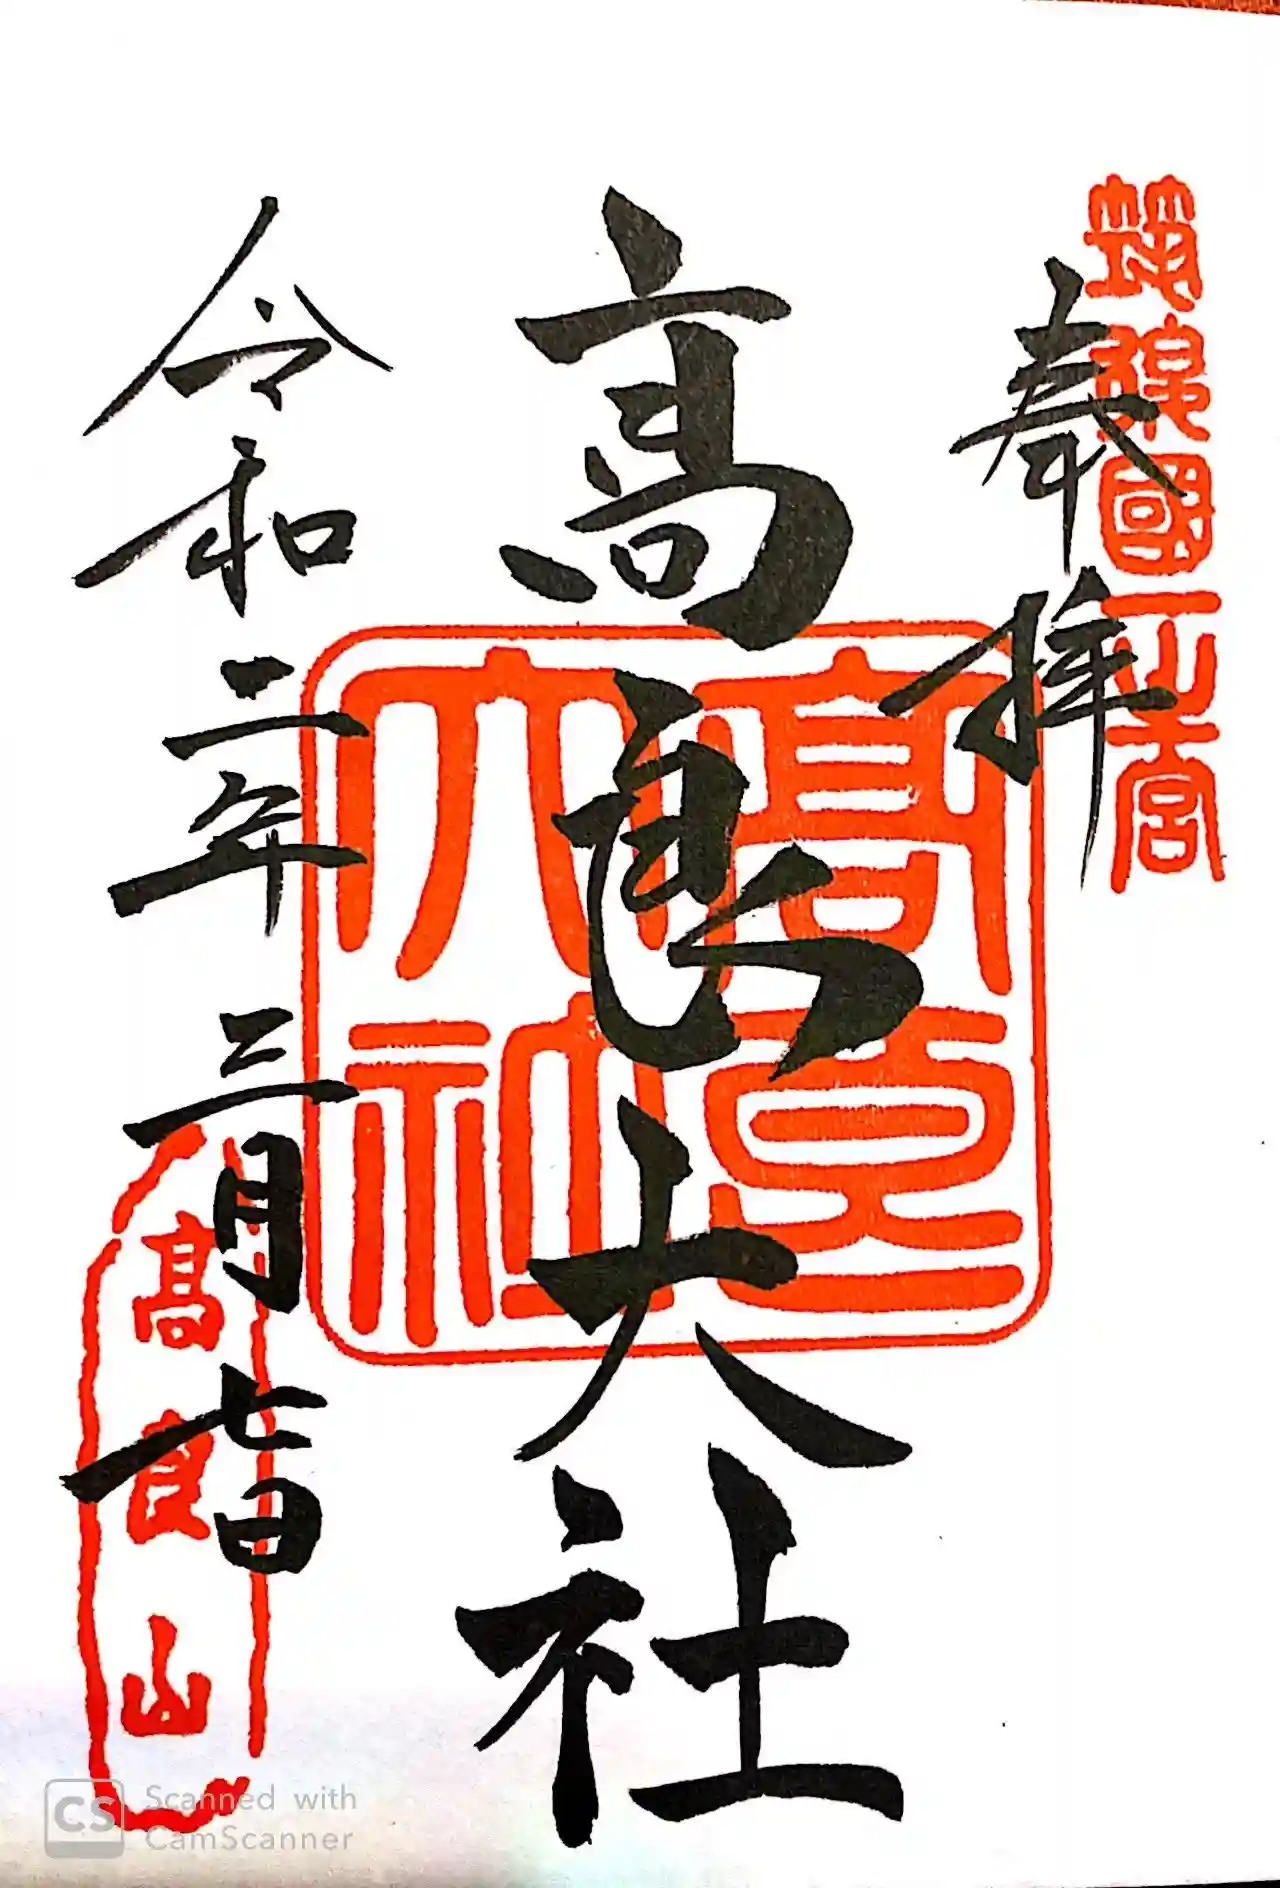 筑後國一之宮
奉拝
高良大社
高良大社
令和二年三月七日
高良山
CS Scanned with
CamScanner